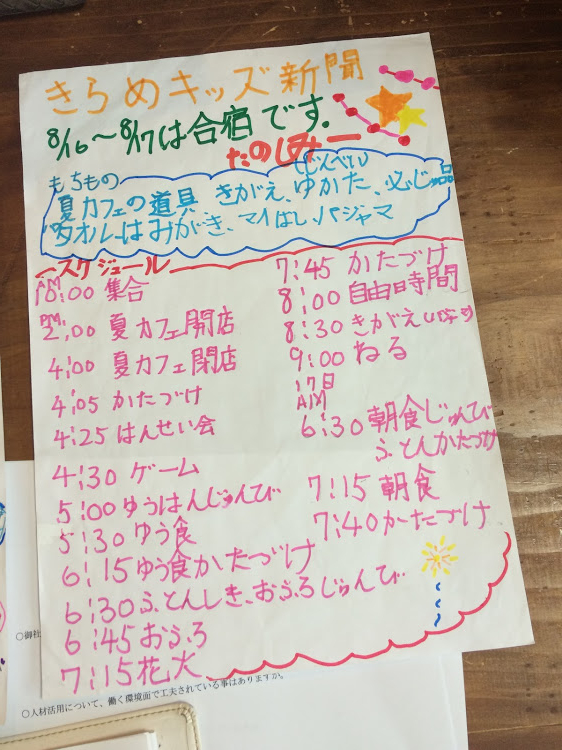 きらめキッズ新聞
8/16～8/17は合宿です。
たのしみー
もちもの
じんべい
夏カフェの道具 きがえ、ゆかた、必じゅ品
タオルはみがき、マイはし、パジャマ
スケジュール
AM
10:00 集合
PM
2:00 夏カフェ開店
4:00 夏カフェ閉店
4:05 かたづけ
4:25 はんせい会
4:30 ゲーム
5:00 ゆうはんじゅんび
5:30 ゆう食
6:15 ゆう食かたづけ
6:30 ふとんしき、おふろじゅんび
6:45 おふろ
7:15 花火
7:45 かたづけ
8:00 自由時間
8:30 きがえ
9:00 ねる
17日
AM
6:30 朝食じゅんび
ふとんかたづけ
7:15 朝食
7:40 かたづけ
○御社
○人材活用について、働く環境面で工夫されている事はありますか。